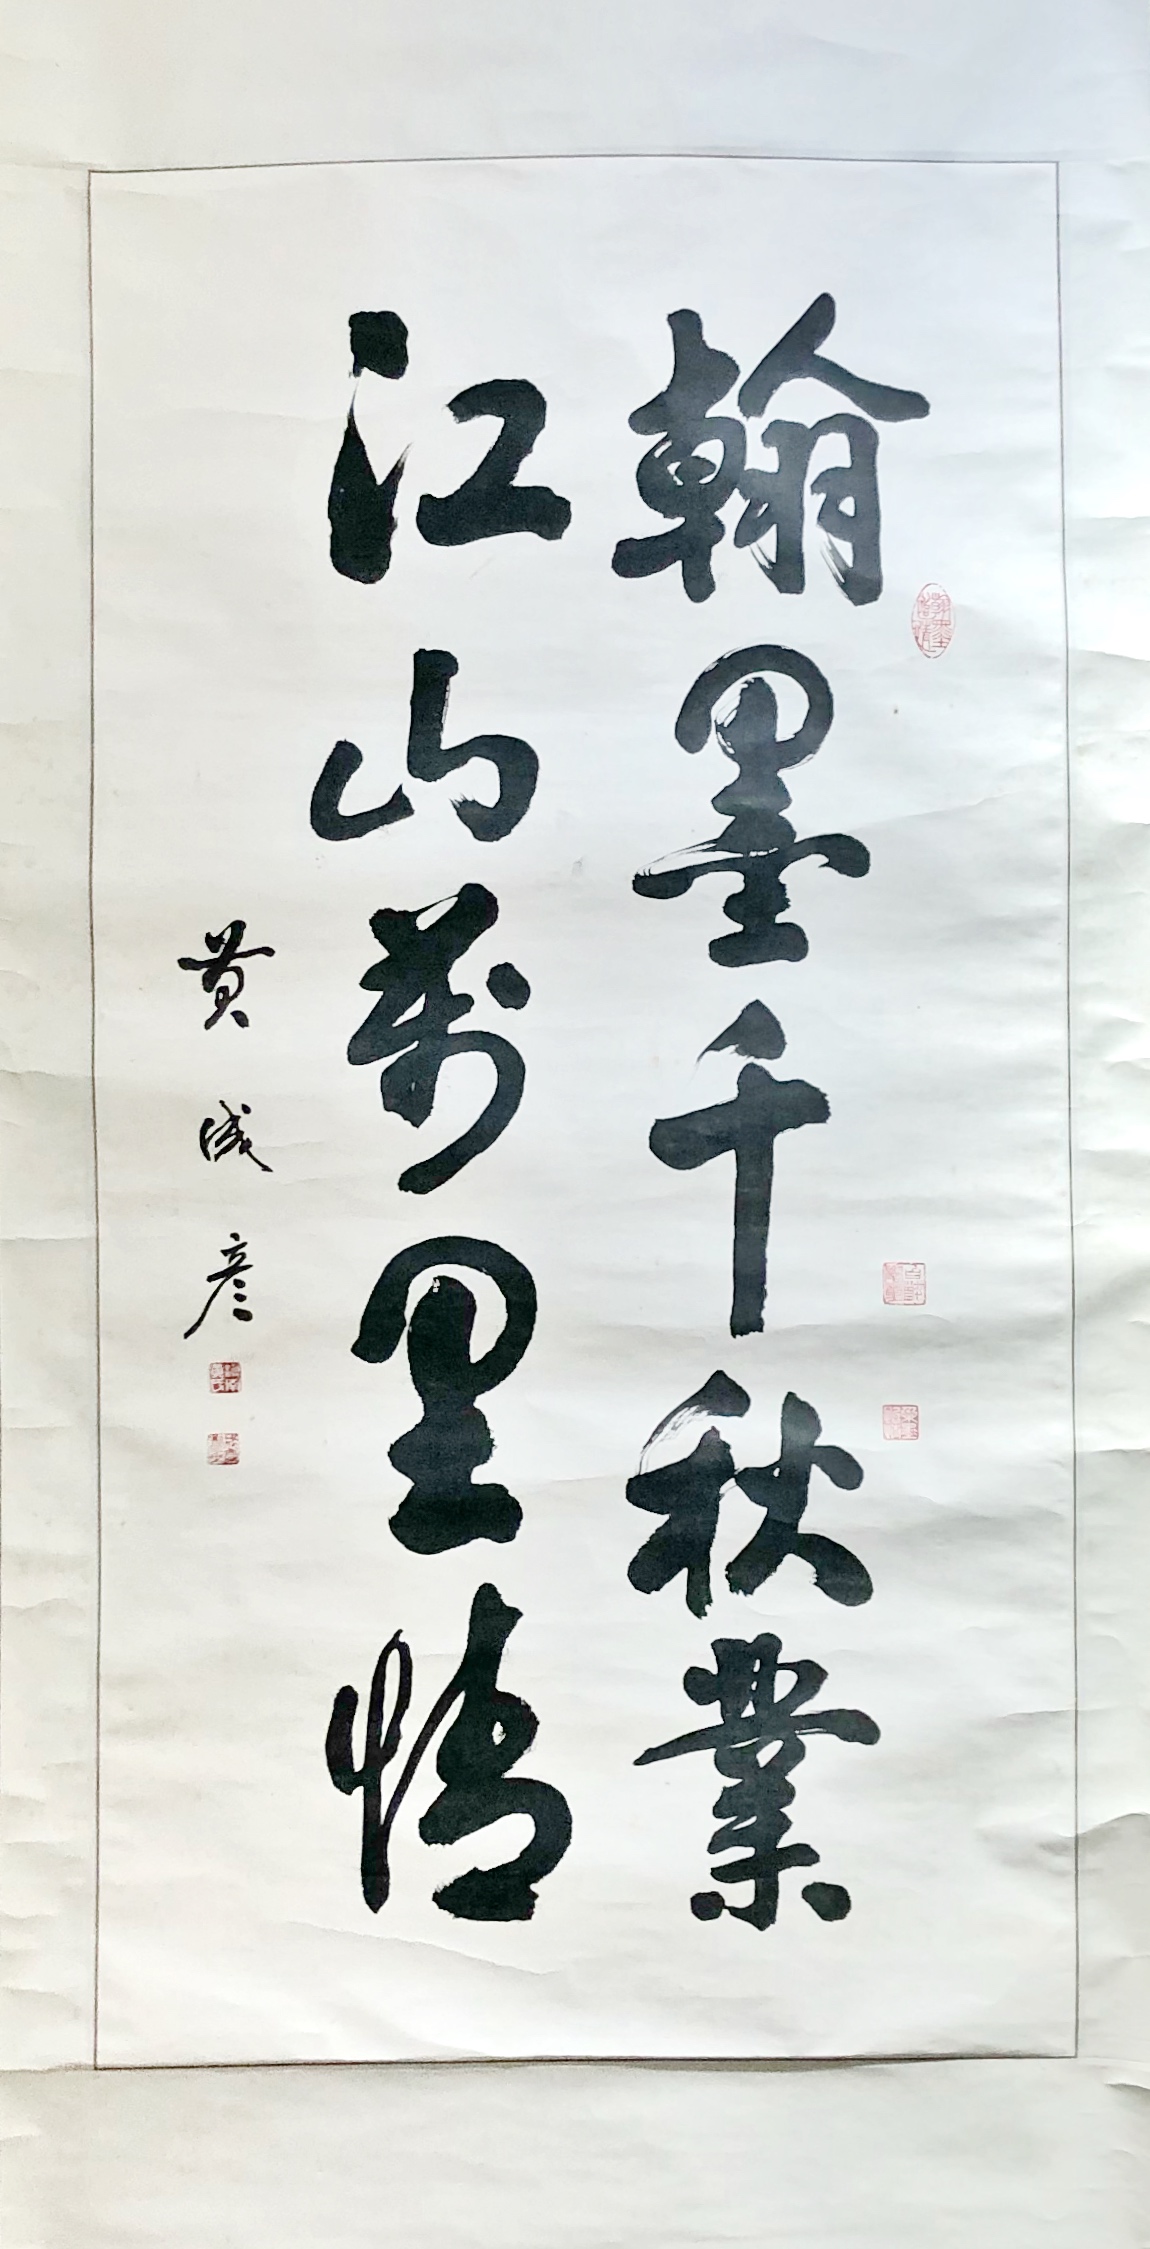 翰墨千秋業
江山萬里情
黄成彦